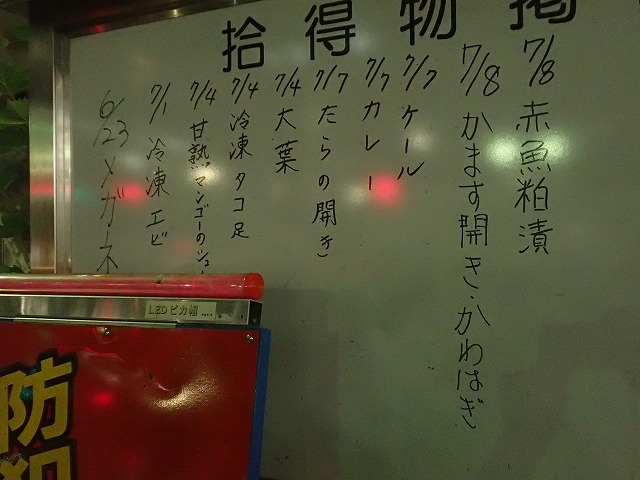 拾得物掲
7/8 赤魚粕漬
7/8 かます開き・かわはぎ
7/7 ケール
7/7 カレー
7/7 たらの開き
7/4 大葉
7/4 冷凍タコ足
7/4 甘熟マンゴーのシュー
7/1 冷凍エビ
6/23 メガネ
LEDピカ帽
防犯